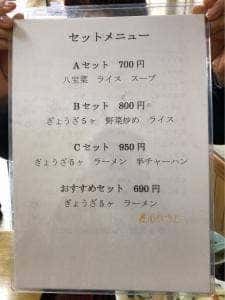 セットメニュー
Aセット 700円
八宝菜 ライス スープ
Bセット 800円
ぎょうざ5ヶ 野菜炒め ライス
Cセット 950円
ぎょうざ5ヶ ラーメン 半チャーハン
おすすめセット 690円
ぎょうざ5ヶ ラーメン